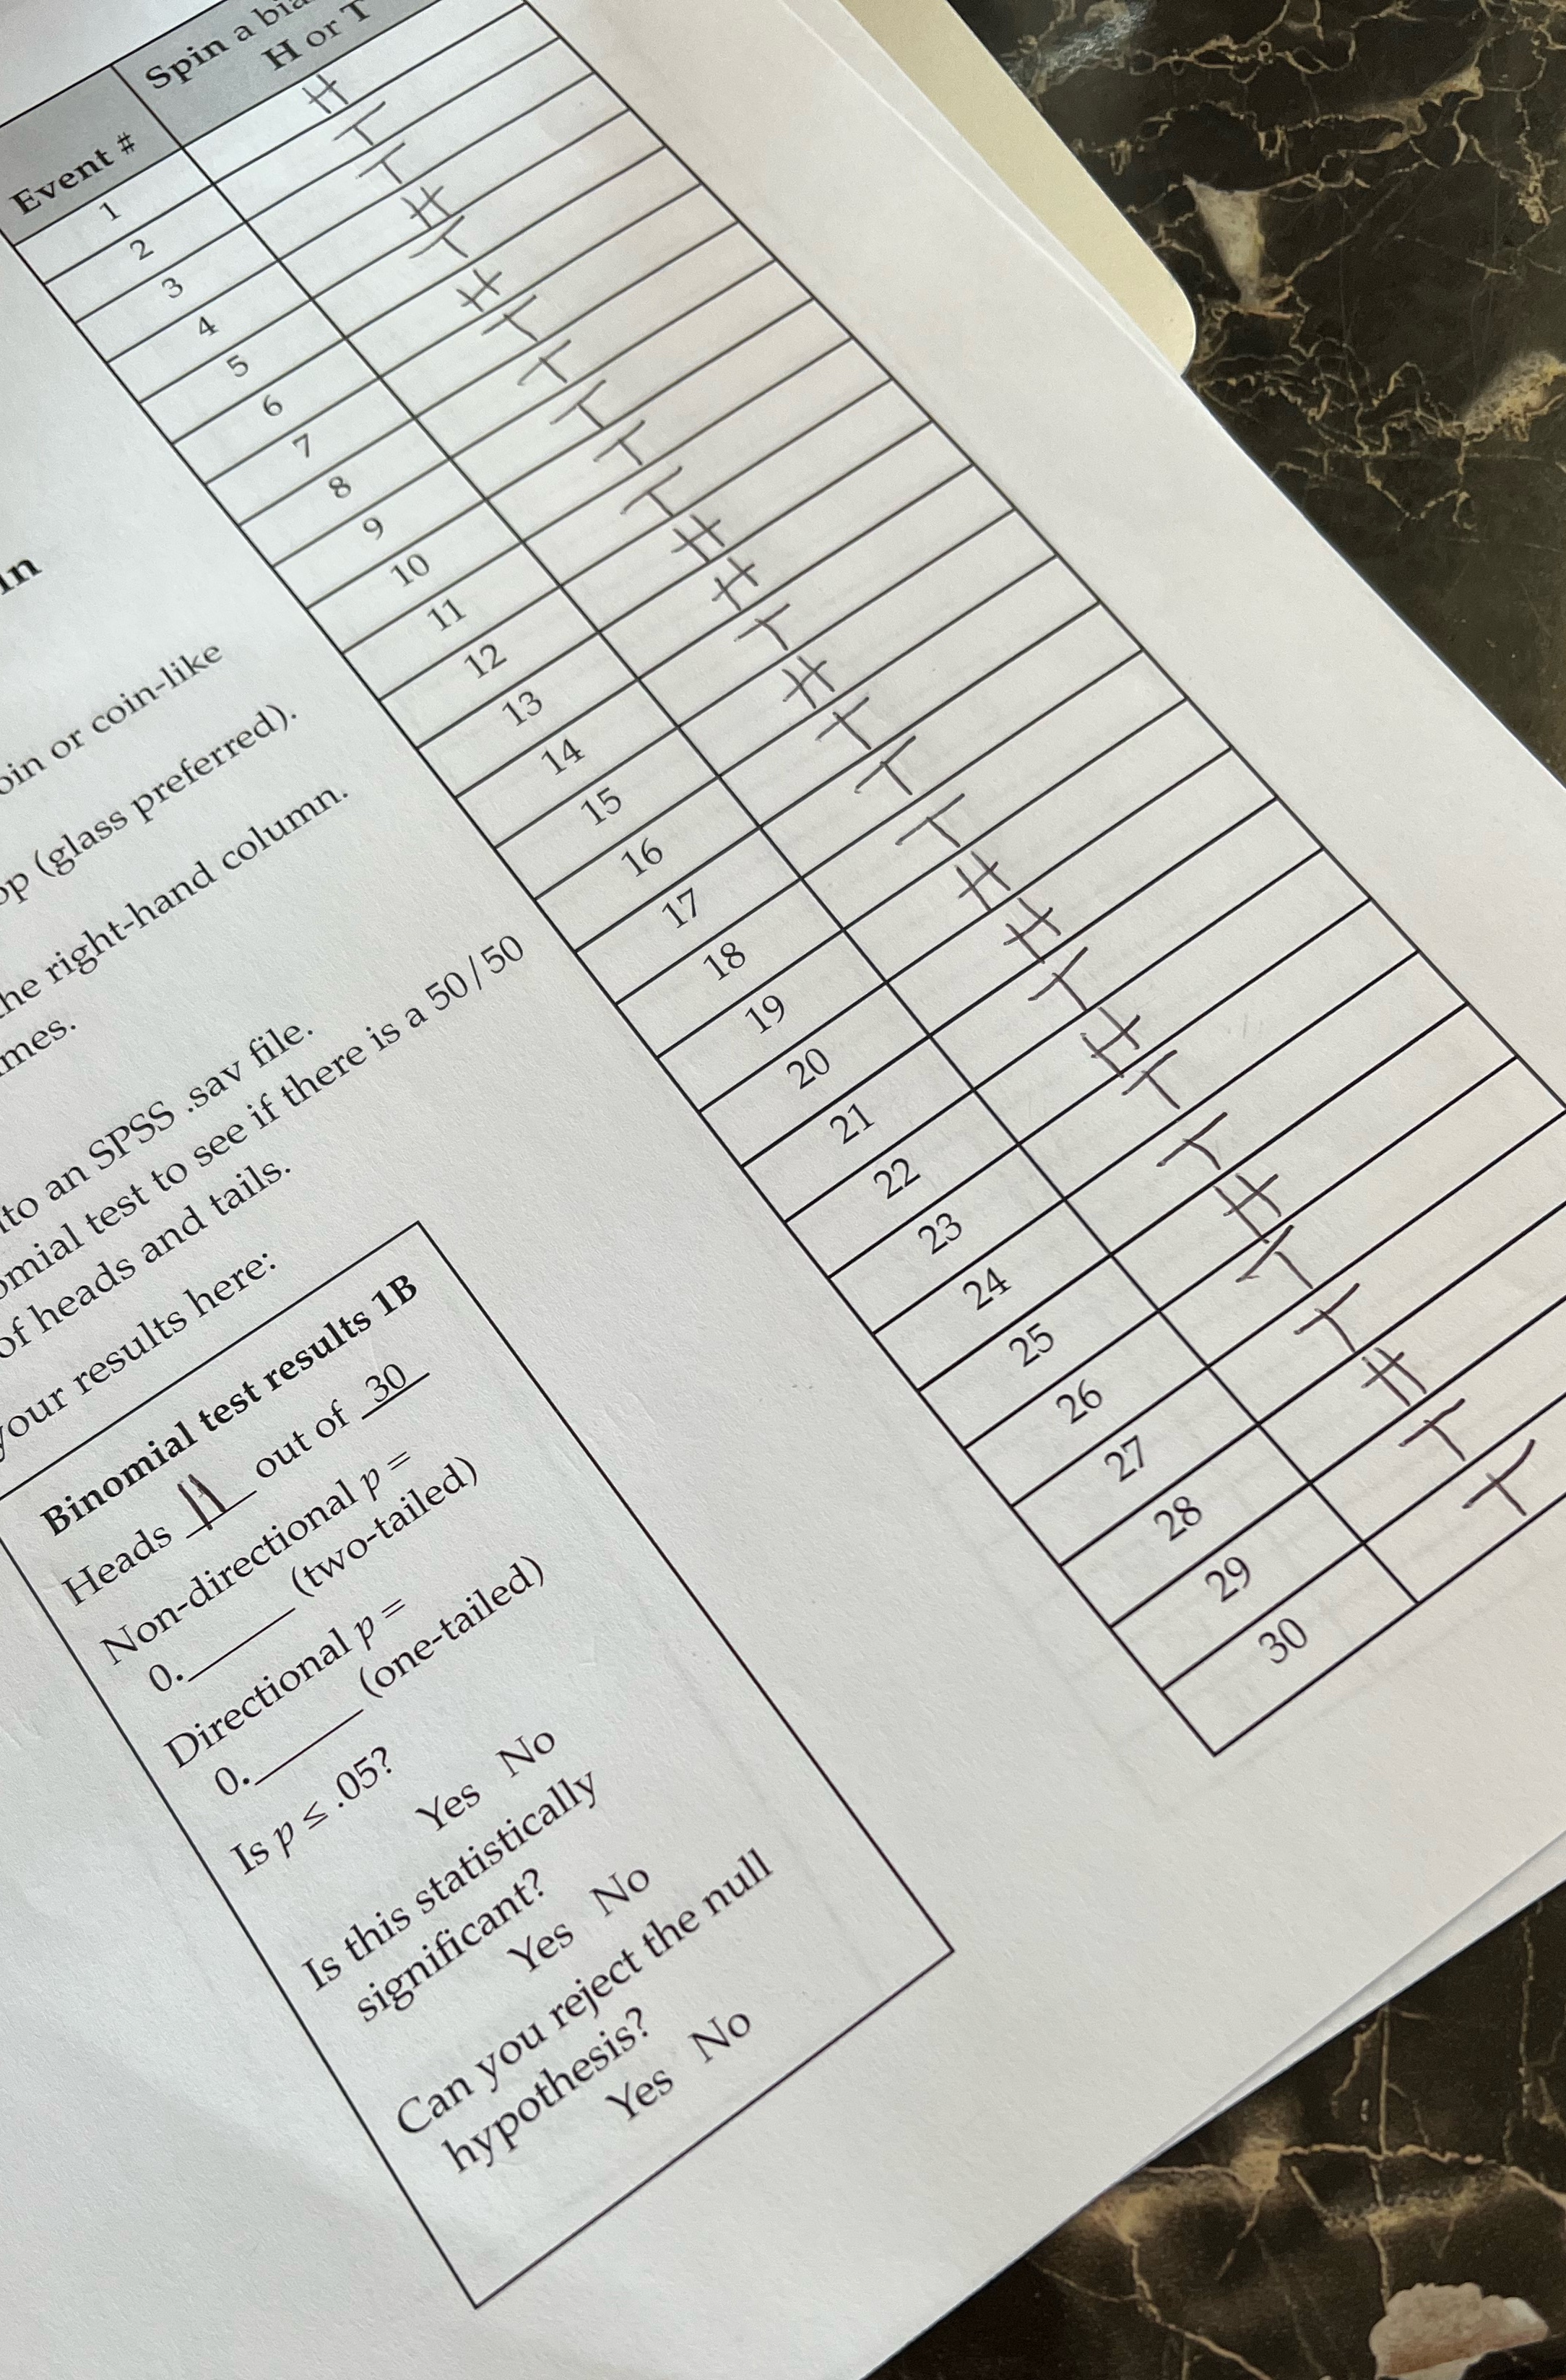 Event #
Spin a
H or T
1 H
2 T
3 T
4 H
5 T
6 H
7 T
8 T
9 T
10 T
11 T
12 H
13 H
14 T
15 H
16 T
17 T
18 T
19 H
20 H
21 T
22 H
23 T
24 T
25 H
26 T
27 T
28 H
29 T
30 T
or coin-like
(glass preferred).
right-hand column.
an SPSS .sav file.
test to see if there is a 50/50
of heads and tails.
your results here:
Binomial test results 1B
Heads 11 out of 30
Non-directional p =
0.______ (two-tailed)
Directional p =
0.______ (one-tailed)
Is p ≤ .05?
Yes No
Is this statistically
significant?
Yes No
Can you reject the null
hypothesis?
Yes No